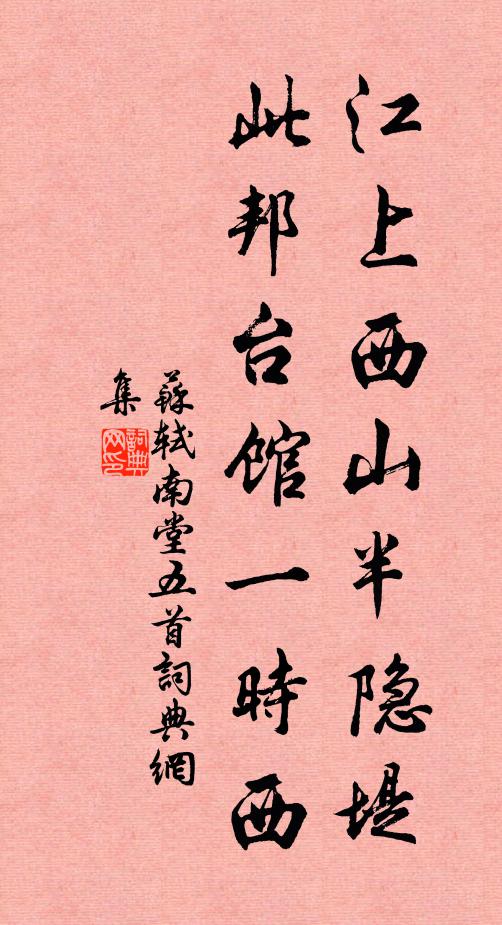 江上西山半隐堤
此邦台馆一時西
蘇軾南堂五首詞典網
集
詞典
网印